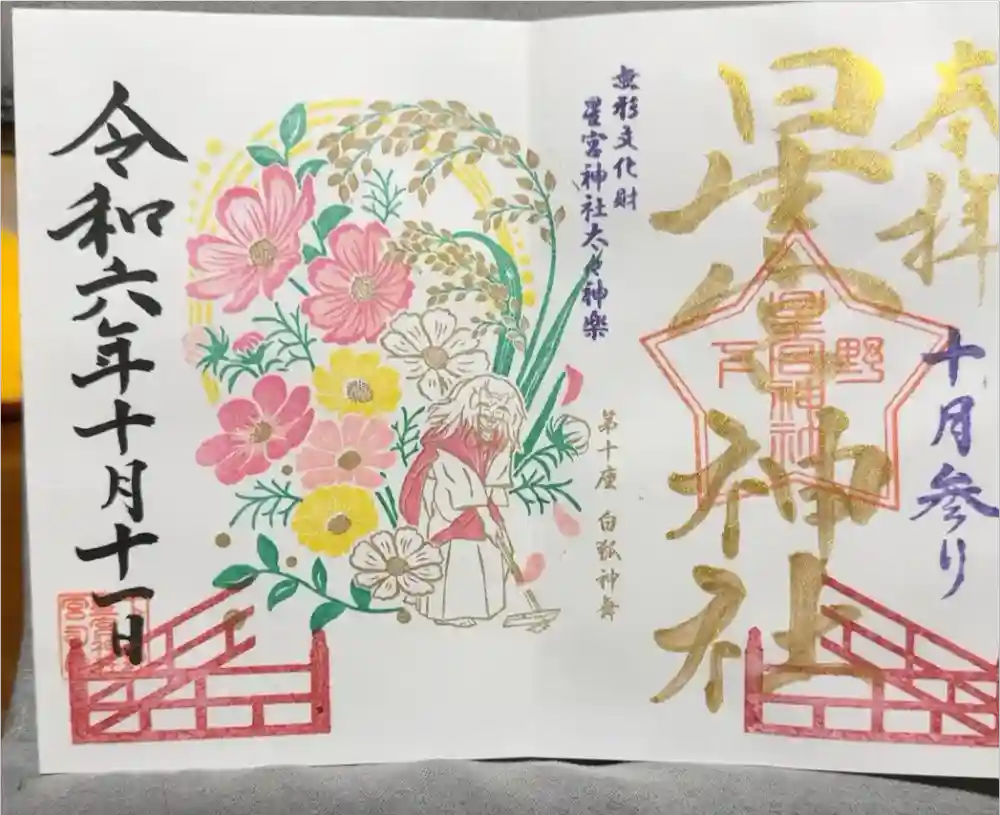 奉拝
十月参り
星宮神社
下野
星宮神社
無形文化財
星宮神社太々神楽
第十座 白狐神舞
令和六年十月十一日